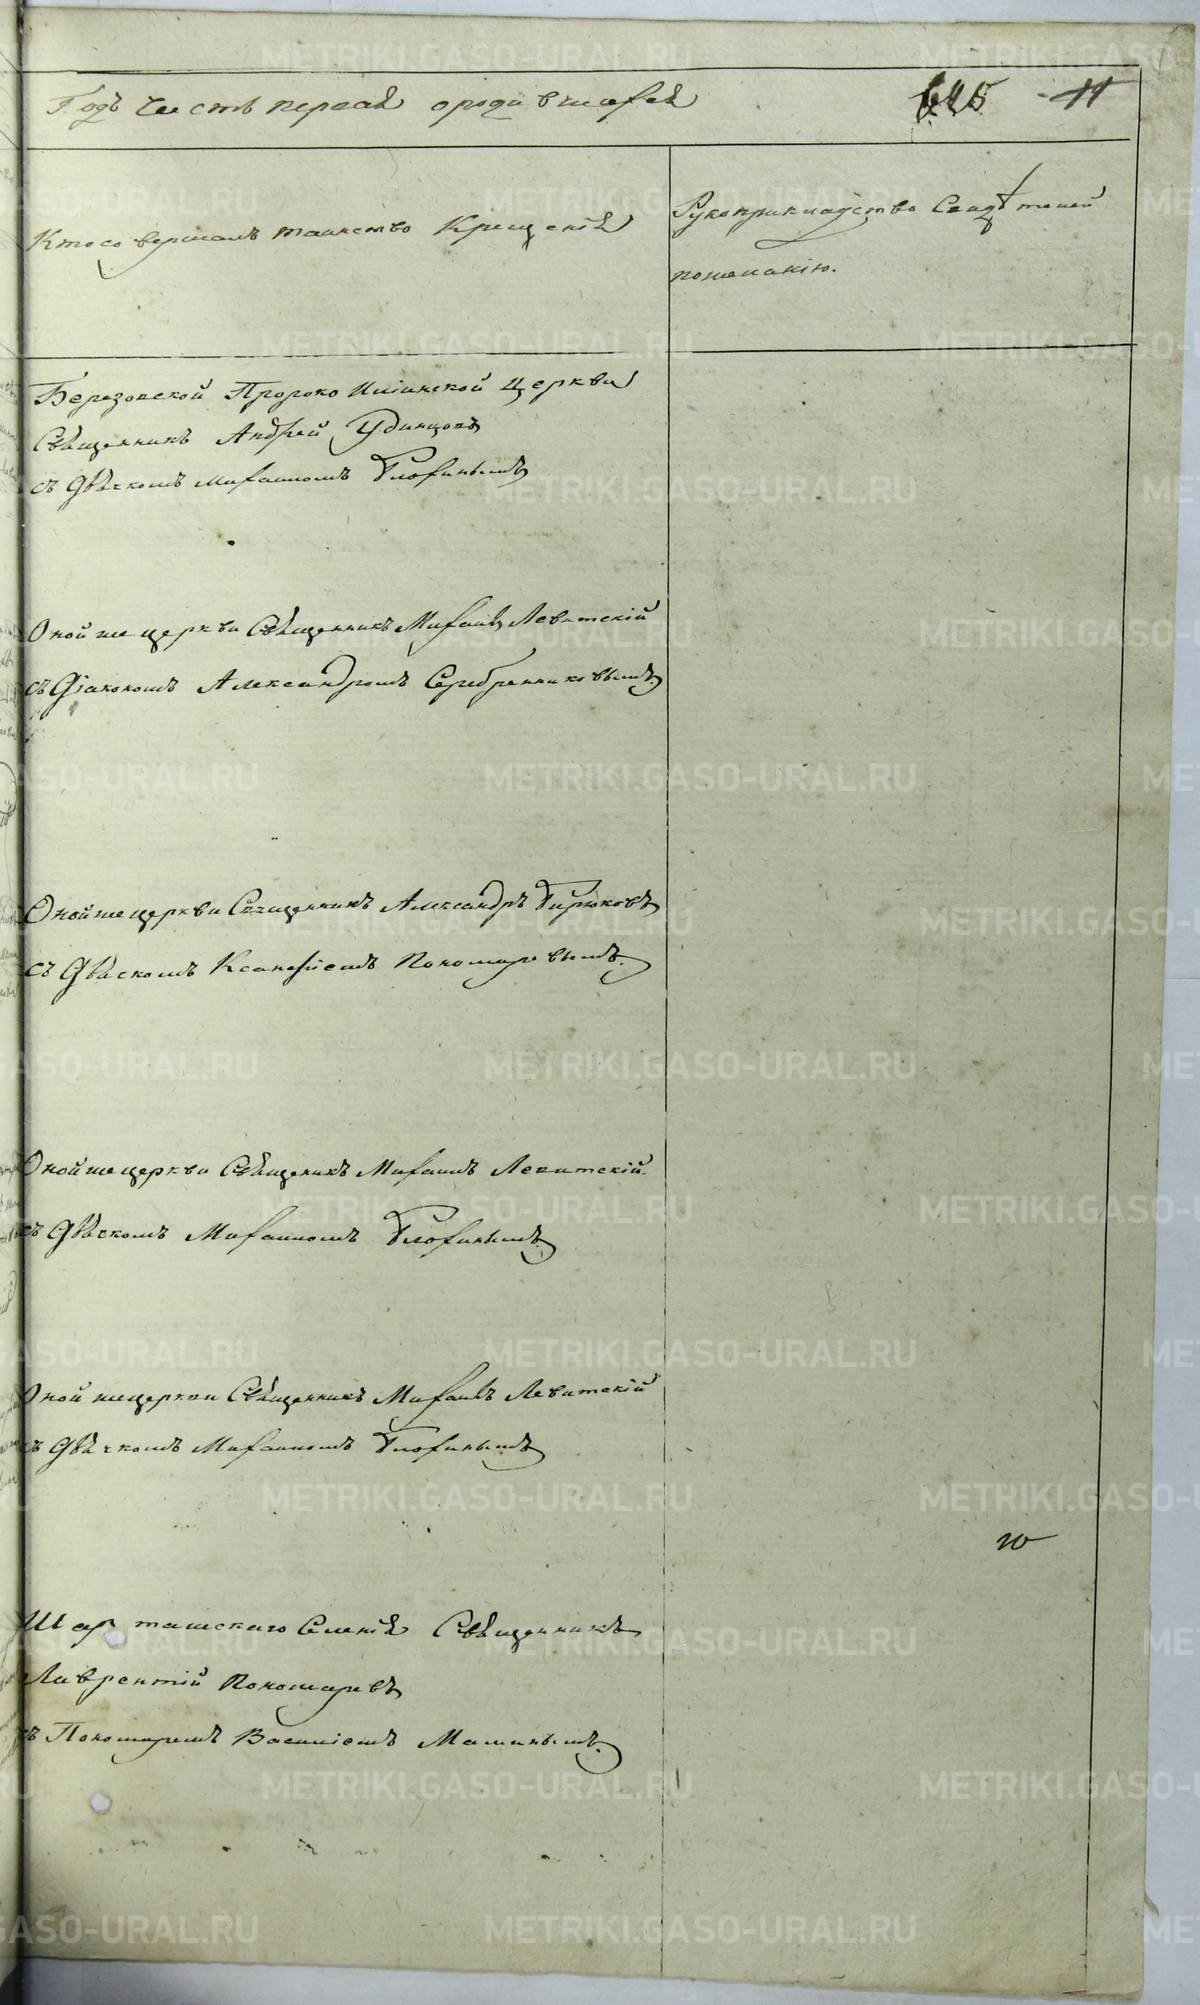 Годъ часть первая ородившихся
645 11
Ктосовершалъ таинство Крещенія
Рукоприкладство Свидѣтелей
пожеланію.
Березовской Пророко Илiинской Церкви
Священникъ Андрей Удинцовъ
съ Дьячкомъ Михаиломъ Глохинымъ
Оной же церкви Священникъ Михаилъ Левитскій
съ Діакономъ Александромъ Серебренниковымъ
Оной же церкви Священникъ Александръ Бирюковъ
съ Дьяскомъ Ксанфіемъ Пономаревымъ.
Оной же церкви Священикъ Михаилъ Левитскій.
съ Дьяскомъ Михаиломъ Глохинымъ.
Оной же церкви Священникъ Михаилъ Левитскій
съ Дьячкомъ Михаиломъ Глохинымъ
Шарташскаго Селенія Священникъ
Лаврентій Пономаревъ
съ Пономаремъ Василіемъ Маминымъ.
METRIKI.GASO-URAL.RU